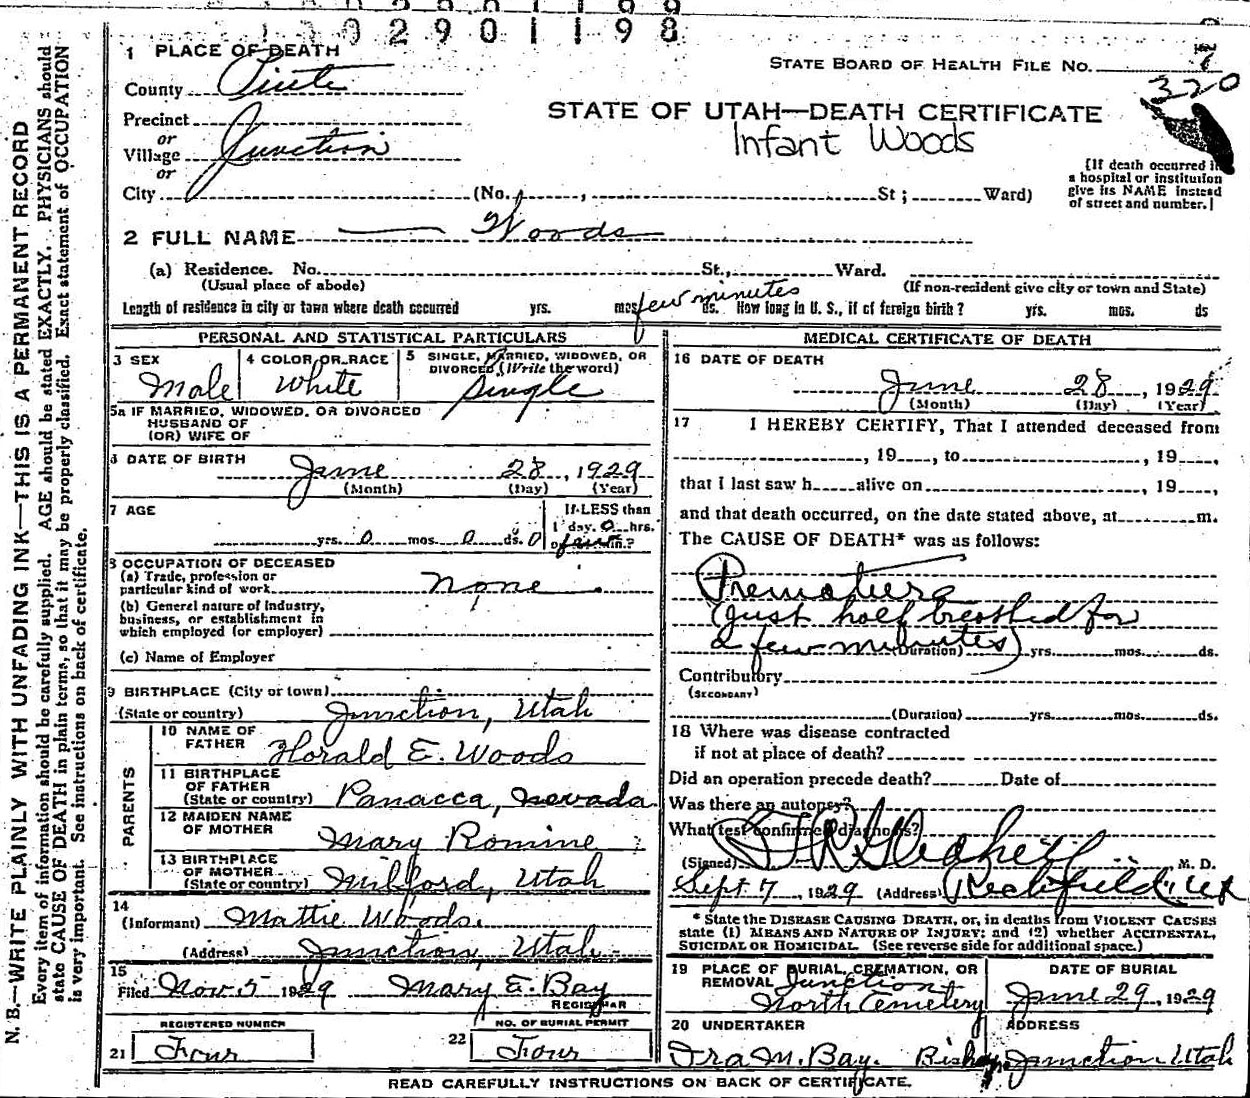 02901198
1 PLACE OF DEATH
STATE BOARD OF HEALTH FILE NO. 7
320
County Piute
STATE OF UTAH—DEATH CERTIFICATE
Infant Woods
Precinct
or
Village Junction
or
City (No. , St; Ward)
(If death occurred in
a hospital or institution
give its NAME instead
of street and number.)
2 FULL NAME — Woods
(a) Residence. No. St., Ward.
(Usual place of abode) (If non-resident give city or town and State)
Length of residence in city or town where death occurred yrs. mos. few minutes ds. How long in U. S., if of foreign birth? yrs. mos. ds
PERSONAL AND STATISTICAL PARTICULARS
3 SEX Male
4 COLOR OR RACE White
5 SINGLE, MARRIED, WIDOWED, OR
DIVORCED (Write the word)
Single
5a IF MARRIED, WIDOWED, OR DIVORCED
HUSBAND OF
(OR) WIFE OF
6 DATE OF BIRTH June 28, 1929
(Month) (Day) (Year)
7 AGE
yrs. 0 mos. 0 ds. 0
If LESS than
1 day, 0 hrs.
or few min.?
8 OCCUPATION OF DECEASED
(a) Trade, profession or
particular kind of work none
(b) General nature of industry,
business, or establishment in
which employed (or employer)
(c) Name of Employer
9 BIRTHPLACE (City or town)
(State or country) Junction, Utah
PARENTS
10 NAME OF
FATHER Horald E. Woods
11 BIRTHPLACE
OF FATHER
(State or country) Panacca, Nevada
12 MAIDEN NAME
OF MOTHER Mary Romine
13 BIRTHPLACE
OF MOTHER
(State or country) Milford, Utah
14
(Informant) Mattie Woods.
(Address) Junction, Utah
15
Filed Nov 5 1929 Mary E. Bay
REGISTRAR
REGISTERED NUMBER
21 Four
NO. OF BURIAL PERMIT
22 Four
MEDICAL CERTIFICATE OF DEATH
16 DATE OF DEATH
June 28, 1929
(Month) (Day) (Year)
17 I HEREBY CERTIFY, That I attended deceased from
, 19 , to , 19 ,
that I last saw h alive on , 19 ,
and that death occurred, on the date stated above, at m.
The CAUSE OF DEATH* was as follows:
Premature
(Just half breathed for
a few minutes)
(Duration) yrs. mos. ds.
Contributory
(SECONDARY)
(Duration) yrs. mos. ds.
18 Where was disease contracted
if not at place of death?
Did an operation precede death? Date of
Was there an autopsy?
What test confirmed diagnosis?
(Signed) M. D.
Sept 7, 1929 (Address) Richfield, Ut
* State the DISEASE CAUSING DEATH, or, in deaths from VIOLENT CAUSES
state (1) MEANS AND NATURE OF INJURY; and (2) whether ACCIDENTAL,
SUICIDAL OR HOMICIDAL. (See reverse side for additional space.)
19 PLACE OF BURIAL, CREMATION, OR
REMOVAL Junction
North Cemetery
DATE OF BURIAL
June 29, 1929
20 UNDERTAKER
Ira M. Bay. Bishop
ADDRESS
Junction Utah
READ CAREFULLY INSTRUCTIONS ON BACK OF CERTIFICATE.
N. B.—WRITE PLAINLY WITH UNFADING INK—THIS IS A PERMANENT RECORD
Every item of information should be carefully supplied. AGE should be stated EXACTLY. PHYSICIANS should
state CAUSE OF DEATH in plain terms, so that it may be properly classified. Exact statement of OCCUPATION
is very important. See instructions on back of certificate.